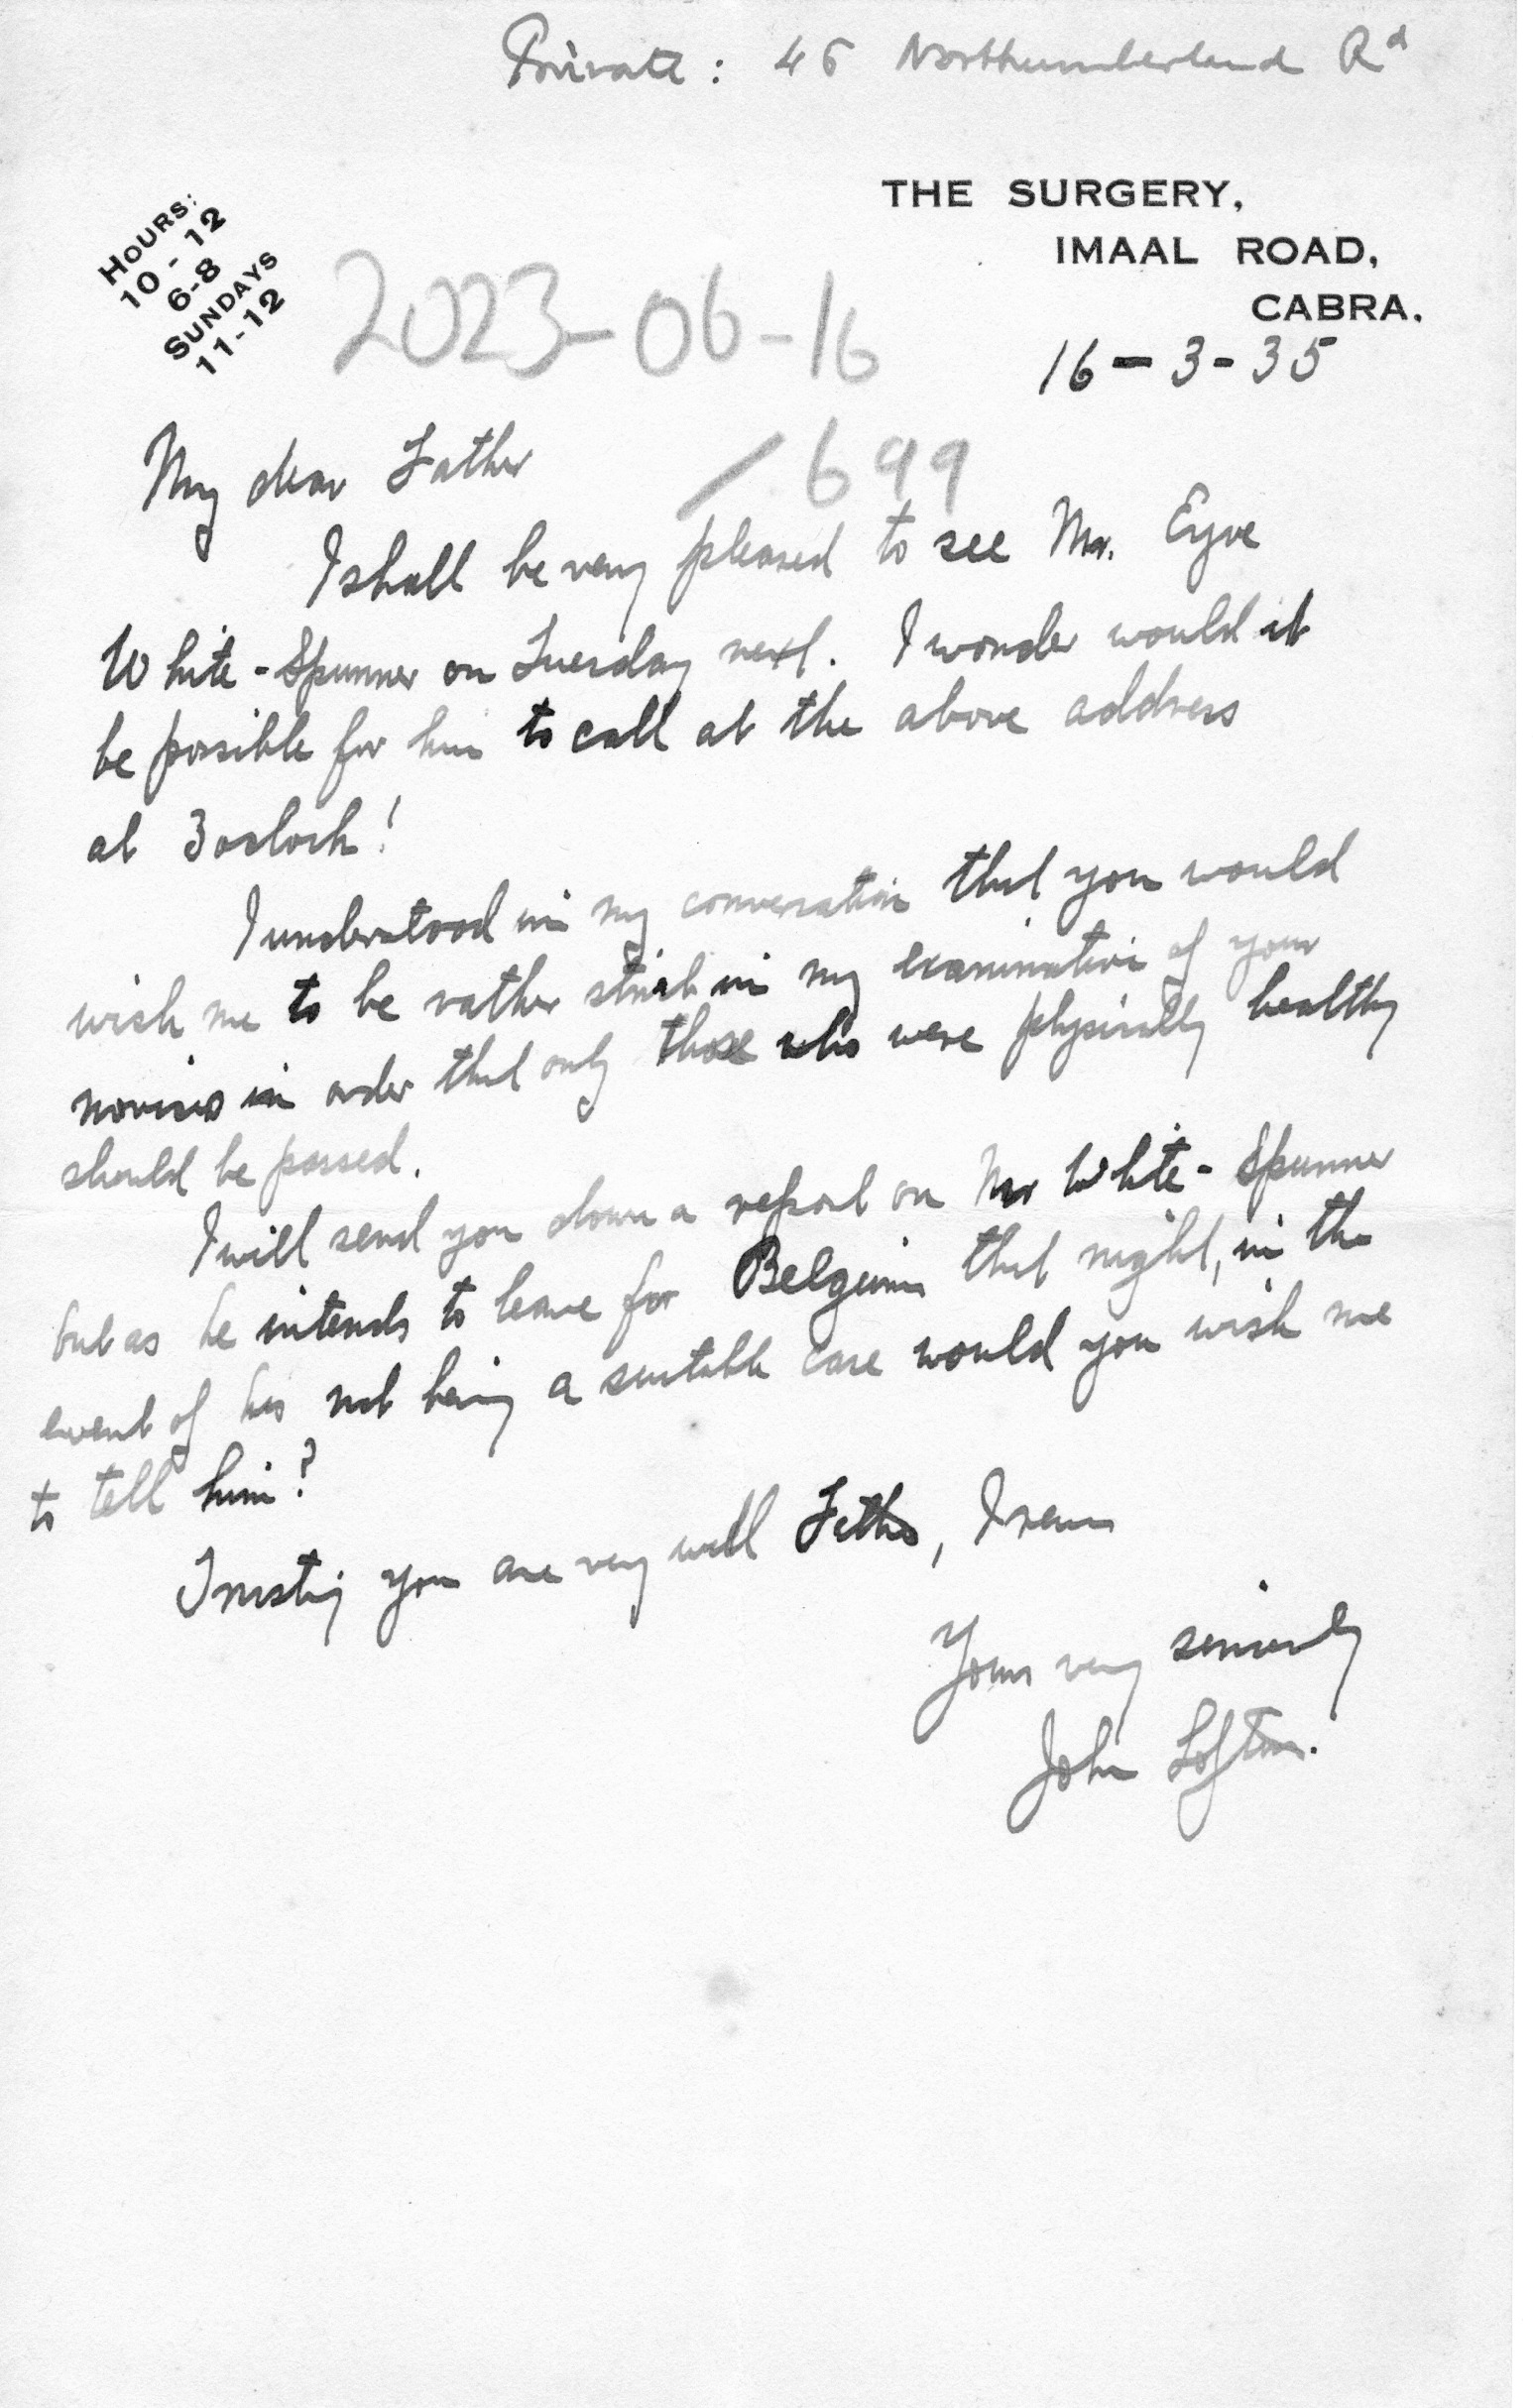 Private: 46 Northumberland Rd
THE SURGERY,
IMAAL ROAD,
CABRA.
HOURS:
10 - 12
6-8
SUNDAYS
11-12
16-3-35
2023-06-16
/699
My dear Father
I shall be very pleased to see Mr. Eyre
White-Spunner on Tuesday next. I wonder would it
be possible for him to call at the above address
at 3 oclock!
I understood in my conversation that you would
wish me to be rather strict in my examination of your
novices in order that only those who were physically healthy
should be passed.
I will send you down a report on Mr White-Spunner
but as he intends to leave for Belgium that night, in the
event of his not being a suitable case would you wish me
to tell him?
Trusting you are very well Father, I remain
Yours very sincerely
John Loftus.